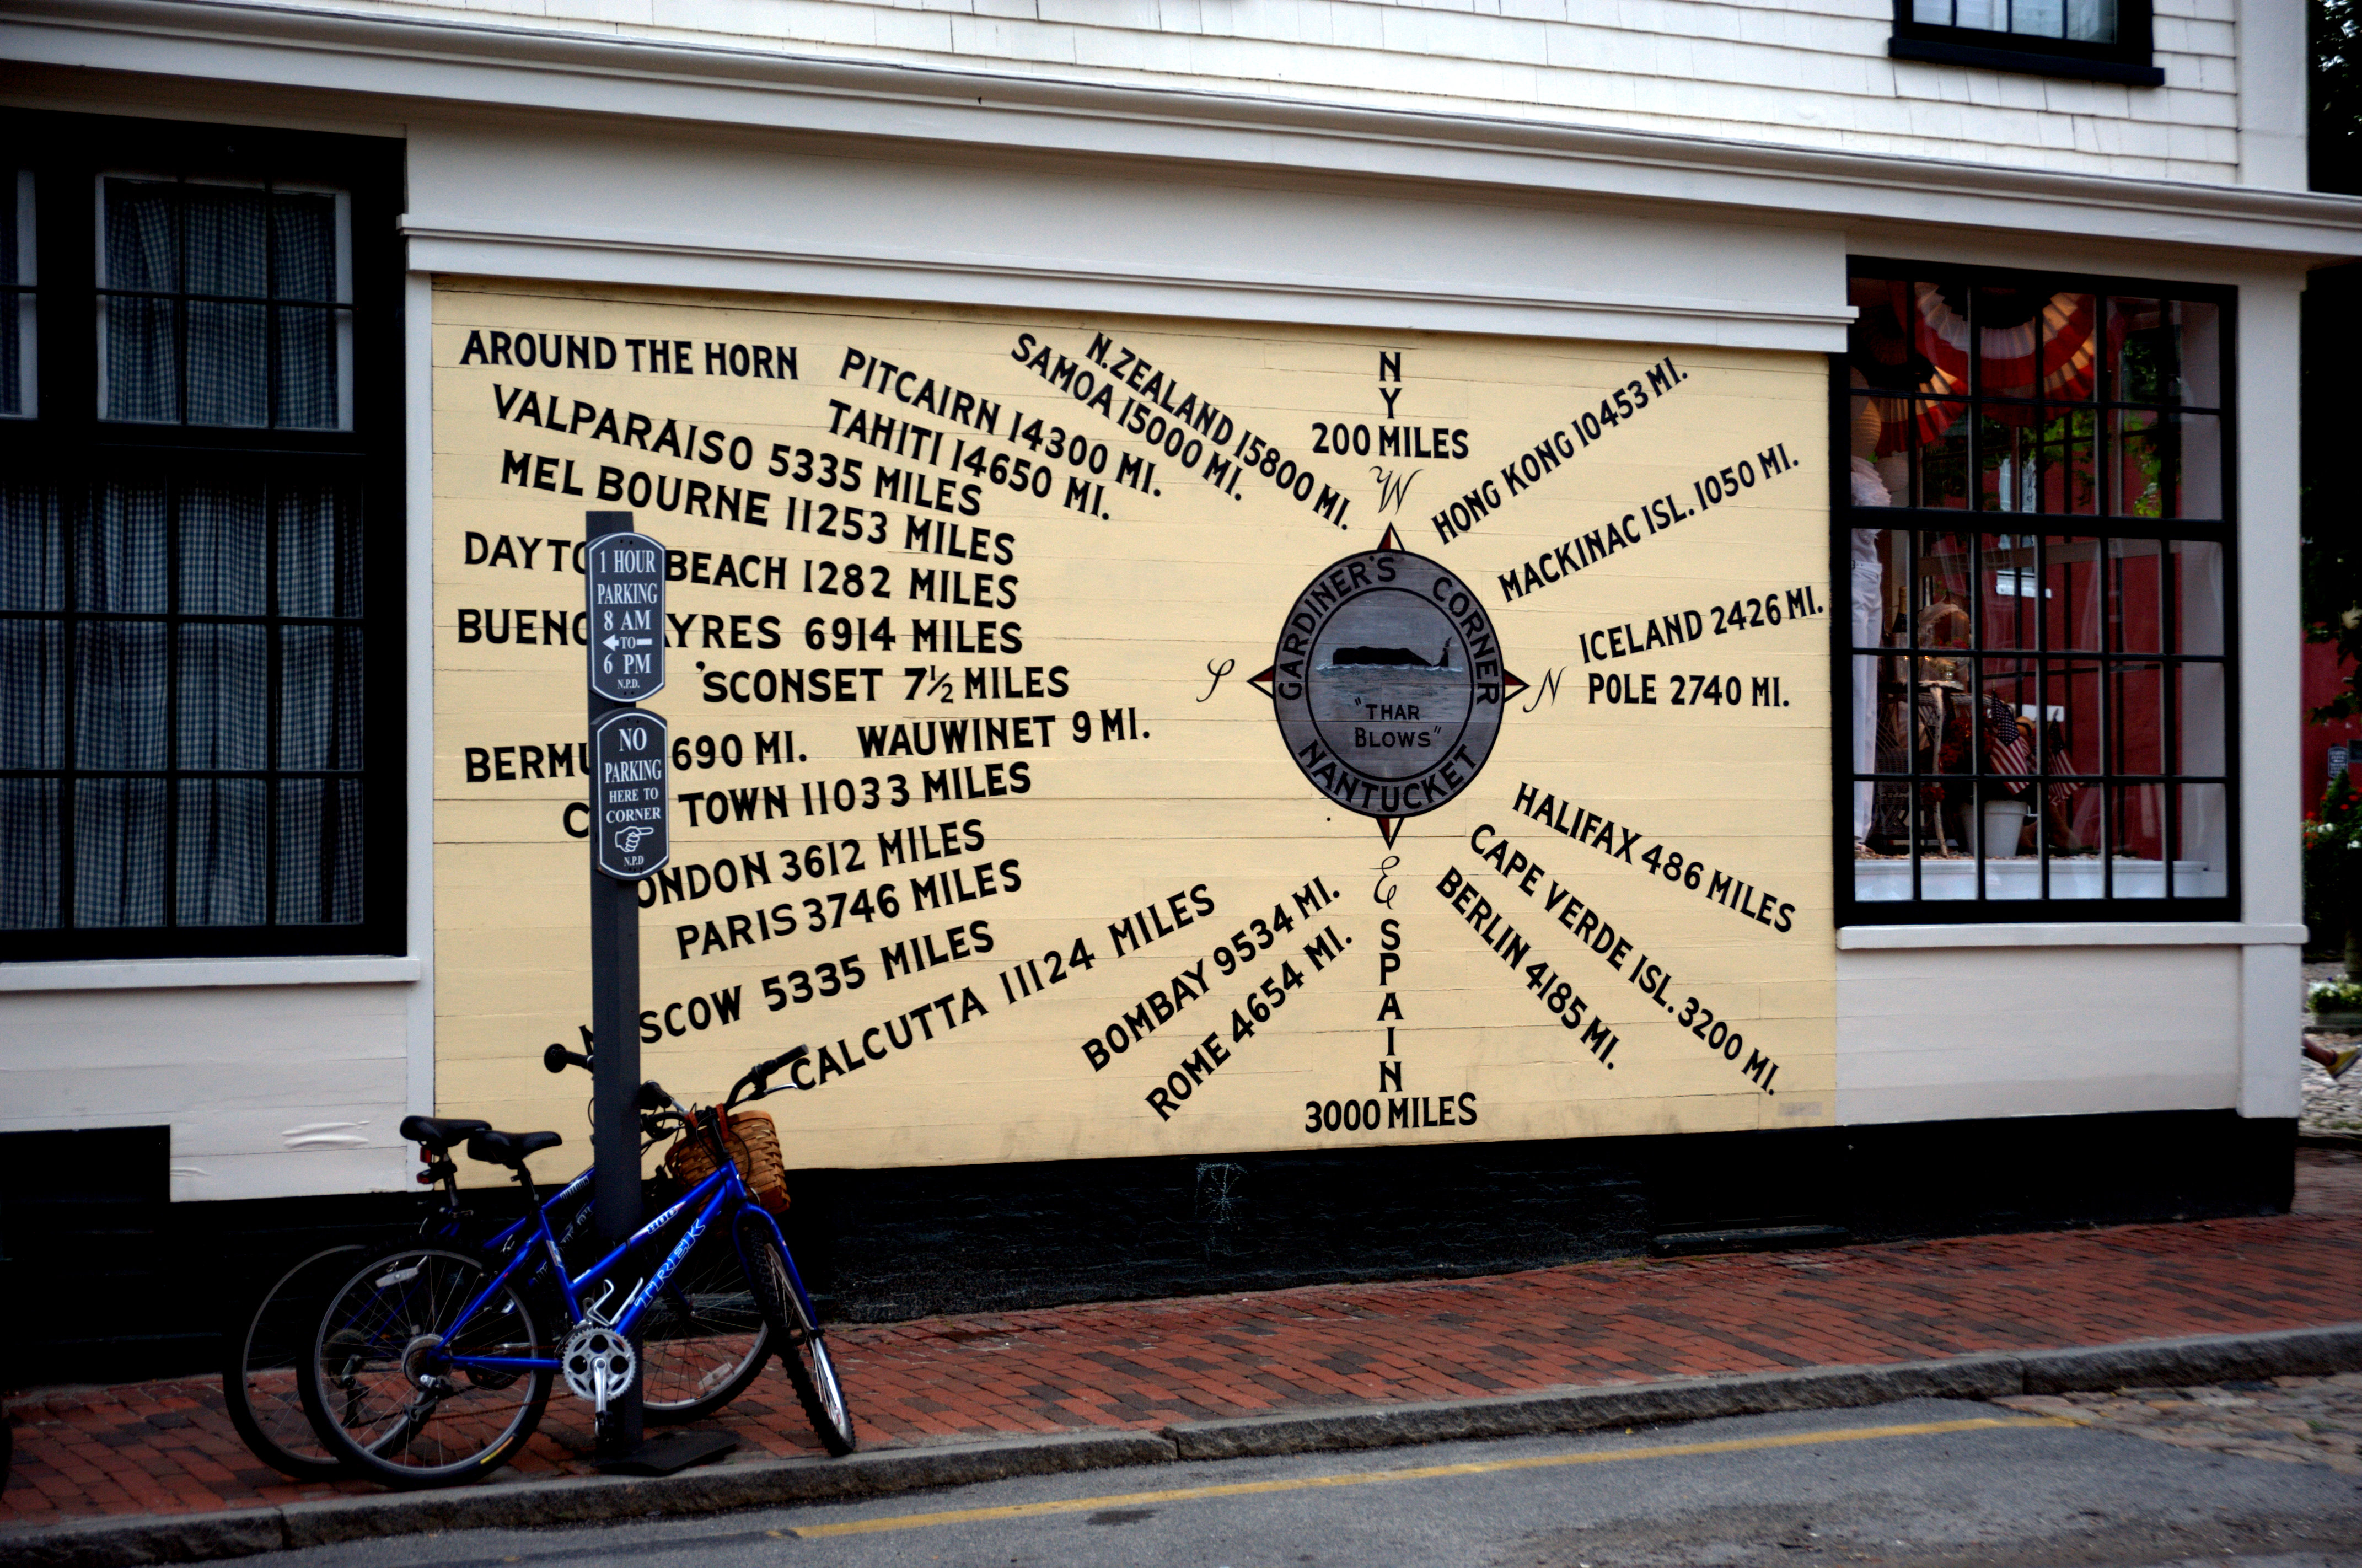 AROUND THE HORN
PITCAIRN 14300 MI.
TAHITI 14650 MI.
N.ZEALAND 15800 MI.
SAMOA 15000 MI.
N
Y
200 MILES
W
HONG KONG 10453 MI.
MACKINAC ISL. 1050 MI.
ICELAND 2426 MI.
N
POLE 2740 MI.
VALPARAISO 5335 MILES
MEL BOURNE 11253 MILES
DAYTO BEACH 1282 MILES
BUENO AYRES 6914 MILES
'SCONSET 7½ MILES
S
BERMU 690 MI.
WAUWINET 9 MI.
C TOWN 11033 MILES
ONDON 3612 MILES
PARIS 3746 MILES
SCOW 5335 MILES
CALCUTTA 11124 MILES
BOMBAY 9534 MI.
ROME 4654 MI.
E
S
P
A
I
N
3000 MILES
HALIFAX 486 MILES
CAPE VERDE ISL. 3200 MI.
BERLIN 4185 MI.
GARDINER'S CORNER
"THAR
BLOWS"
NANTUCKET
1 HOUR
PARKING
8 AM
TO
6 PM
N.P.D.
NO
PARKING
HERE TO
CORNER
N.P.D
TREK
800